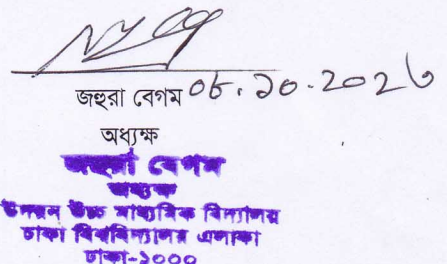 জহুরা বেগম ০৮.১০.২০২৬
অধ্যক্ষ
জহুরা বেগম
অধ্যক্ষ
উদয়ন উচ্চ মাধ্যমিক বিদ্যালয়
ঢাকা বিশ্ববিদ্যালয় এলাকা
ঢাকা-১০০০